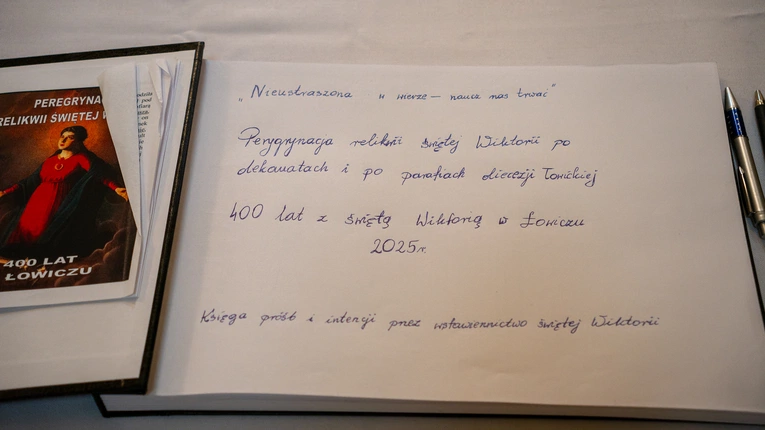 PEREGRYNA
RELIKWII ŚWIĘTEJ W
400 LAT
ŁOWICZU
„Nieustraszona w wierze — naucz nas trwać"
Perygrynacja relikwii świętej Wiktorii po
dekanatach i po parafiach diecezji Łowickiej
400 lat z świętą Wiktorią w Łowiczu
2025r.
Księga próśb i intencji przez wstawiennictwo świętej Wiktorii